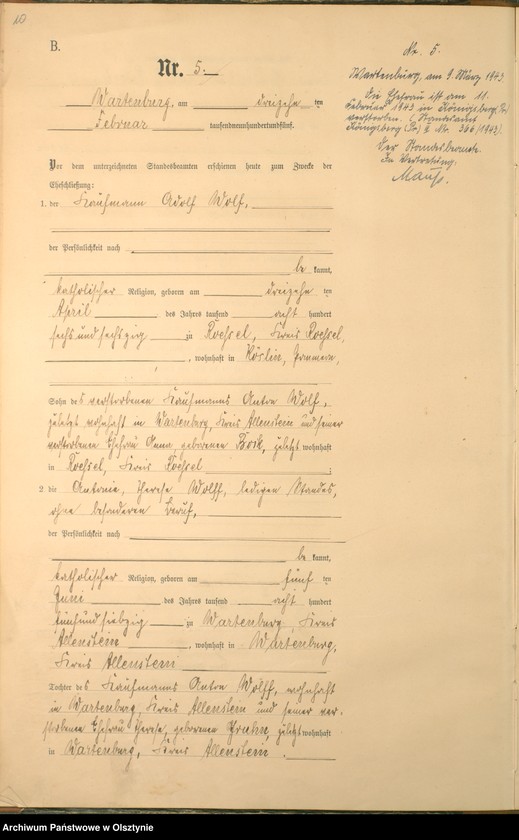 10
B.
Nr. 5.
Wartenburg, am dreizehn ten
Februar tausendneunhundertundfünf.
Vor dem unterzeichneten Standesbeamten erschienen heute zum Zwecke der
Eheschließung:
1. der Kaufmann Adolf Wolf,
der Persönlichkeit nach
be kannt,
katholischer Religion, geboren am dreizehn ten
April des Jahres tausend acht hundert
sechs und sechszig zu Roessel, Kreis Roessel,
, wohnhaft in Köslin, Pommern,
Sohn des verstorbenen Kaufmanns Anton Wolf,
zuletzt wohnhaft in Wartenburg Kreis Allenstein und seiner
verstorbenen Ehefrau Anna geborenen zuletzt wohnhaft
in Roessel, Kreis Roessel
2. die Antonie, Therese Wolff, ledigen Standes,
ohne besonderen Beruf,
der Persönlichkeit nach
be kannt,
katholischer Religion, geboren am fünf ten
Juni des Jahres tausend acht hundert
fünf und siebzig zu Wartenburg Kreis
Allenstein, wohnhaft in Wartenburg,
Kreis Allenstein
Tochter des Kaufmanns Anton Wolff, wohnhaft
in Wartenburg, Kreis Allenstein und seiner ver-
storbenen Ehefrau Therese, geborenen zuletzt wohnhaft
in Wartenburg, Kreis Allenstein.
Nr. 5.
Wartenburg, am 9. März 1943
Die Ehefrau ist am 11.
Februar 1943 in Königsberg (Pr)
verstorben. (Standesamt
Königsberg (Pr) Nr. 366/1943).
Der Standesbeamte.
In Vertretung:
Archiwum Państwowe w Olsztynie